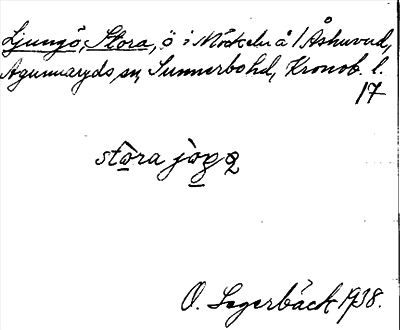 Ljungö, Stora, ö i Möckeln å / Åshuvud,
Agunnaryds sn, Sunnerbo hd, Kronob. l.
17
stọ̀ra jọ̀g
O. Lagerbäck 1938.